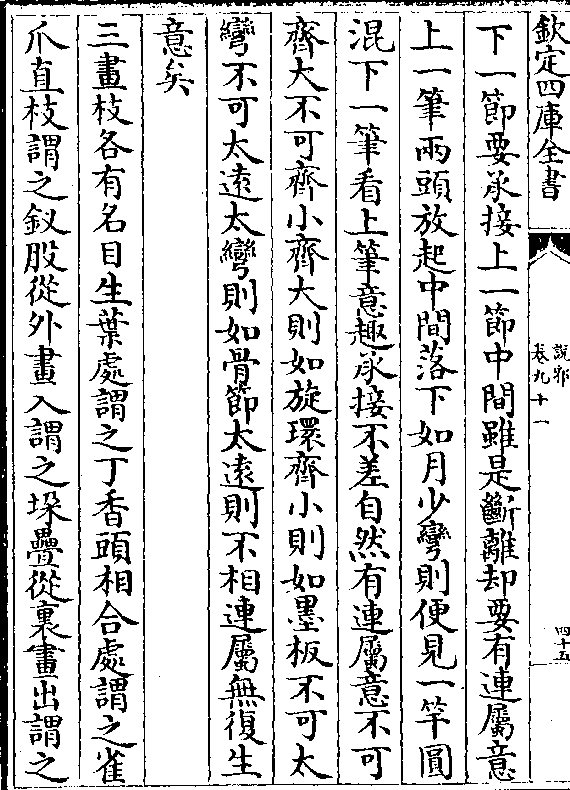 欽定四庫全書
說郛
卷九十一
四十五
下一節要承接上一節中間雖是斷離却要有連屬意
上一筆兩頭放起中間落下如月少彎則便見一竿圓
混下一筆看上筆意趣承接不差自然有連屬意不可
齊大不可齊小齊大則如旋環齊小則如墨板不可太
彎不可太遠太彎則如骨節太遠則不相連屬無復生
意矣
三畫枝各有名目生葉處謂之丁香頭相合處謂之雀
爪直枝謂之釵股從外畫入謂之垜疊從裏畫出謂之